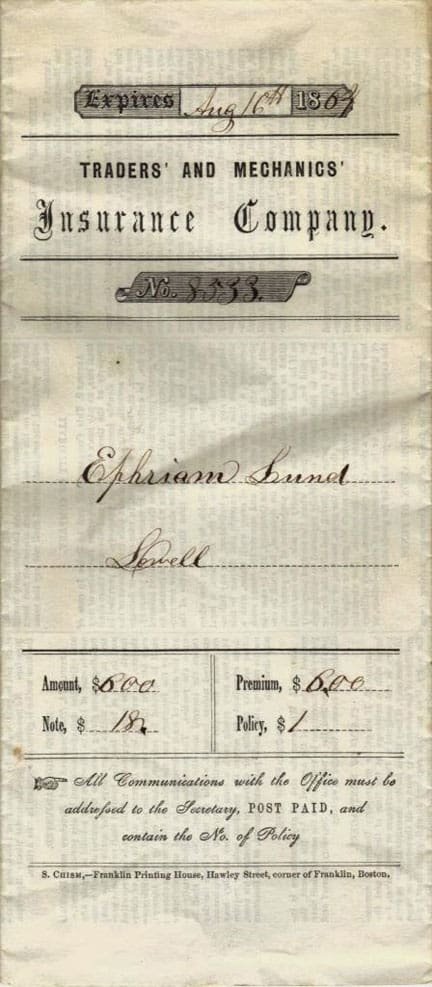 Expires Aug 16th 1864
TRADERS' AND MECHANICS'
Insurance Company.
No. 8533.
Ephriam Lund
Lowell
Amount, $600 Premium, $ 6.00
Note, $ 18, Policy, $ 1
All Communications with the Office must be
addressed to the Secretary, POST PAID, and
contain the No. of Policy
S. CHISM,—Franklin Printing House, Hawley Street, corner of Franklin, Boston.